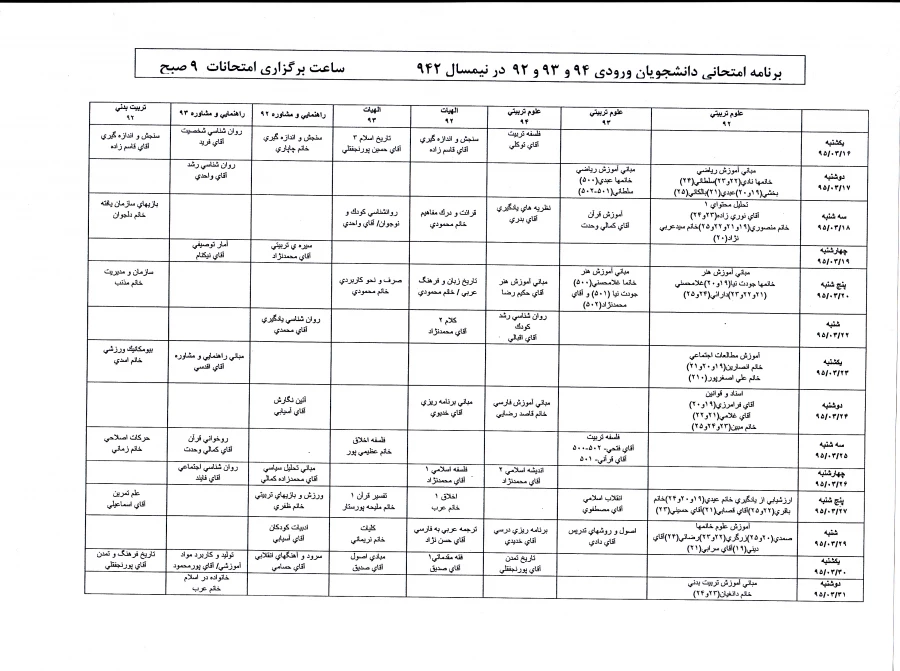 برنامه امتحاني دانشجويان ورودي ۹۴ و ۹۳ و ۹۲ در نيمسال ۹۴۲ ساعت برگزاري امتحانات ۹ صبح
علوم تربيتي ۹۲
علوم تربيتي ۹۳
علوم تربيتي ۹۴
الهيات ۹۲
الهيات ۹۳
راهنمايي و مشاوره ۹۲
راهنمايي و مشاوره ۹۳
تربيت بدني ۹۲
يكشنبه ۹۵/۰۳/۱۶
فلسفه تربيت
آقاي توكلي
سنجش و اندازه گيري
آقاي قاسم زاده
تاريخ اسلام ۳
آقاي حسين پورنجفقلي
سنجش و اندازه گيري
خانم چاپاري
روان شناسي شخصيت
آقاي فريد
سنجش و اندازه گيري
آقاي قاسم زاده
دوشنبه ۹۵/۰۳/۱۷
مباني آموزش رياضي
خانمها نادي(۲۲و۲۳)سلطاني(۲۴)
بخشي(۱۹و۲۰)عبدي(۲۱)بالكاني(۲۵)
مباني آموزش رياضي
خانمها عبدي(۵۰۰)
سلطاني(۵۰۱-۵۰۲)
روان شناسي رشد
آقاي واحدي
سه شنبه ۹۵/۰۳/۱۸
تحليل محتواي ۱
آقاي نوري زاده(۲۳و۲۴)
خانم منصوري(۱۹و۲۱و۲۲و۲۵)خانم سيدعربي
نژاد(۲۰)
آموزش قرآن
آقاي كمالي وحدت
نظريه هاي يادگيري
آقاي بدري
قرائت و درك مفاهيم
خانم محمودي
روانشناسي كودك و
نوجوان/ آقاي واحدي
بازيهاي سازمان يافته
خانم دلجوان
چهارشنبه ۹۵/۰۳/۱۹
سيره ي تربيتي
آقاي محمدنژاد
آمار توصيفي
آقاي نيكنام
پنج شنبه ۹۵/۰۳/۲۰
مباني آموزش هنر
خانمها جودت نيا(۱۹و۲۰)غلامحسني
(۲۱و۲۲و۲۳)داراني(۲۴و۲۵)
مباني آموزش هنر
خانما غلامحسني(۵۰۰)
جودت نيا (۵۰۱) و آقاي
محمدنژاد(۵۰۲)
مباني آموزش هنر
آقاي حكيم رضا
تاريخ زبان و فرهنگ
عربي / خانم محمودي
صرف و نحو كاربردي
خانم محمودي
سازمان و مديريت
خانم مذنب
شنبه ۹۵/۰۳/۲۲
روان شناسي رشد
كودك
آقاي اقبالي
كلام ۲
آقاي محمدنژاد
روان شناسي يادگيري
آقاي محمدي
يكشنبه ۹۵/۰۳/۲۳
آموزش مطالعات اجتماعي
خانم انصارين(۱۹و۲۰و۲۱)
خانم علي اصغرپور(۲۱۰)
مباني راهنمايي و مشاوره
آقاي اقدسي
بيومكانيك ورزشي
خانم اسدي
دوشنبه ۹۵/۰۳/۲۴
اسناد و قوانين
آقاي فرامرزي(۱۹و۲۰)
آقاي غلامي(۲۱و۲۲)
خانم مبين(۲۳و۲۴و۲۵)
مباني آموزش فارسي
خانم قاصد رضايي
مباني برنامه ريزي
آقاي خديوي
آئين نگارش
آقاي آسيابي
سه شنبه ۹۵/۰۳/۲۵
فلسفه تربيت
آقاي فتحي- ۵۰۲-۵۰۰
آقاي قرآني- ۵۰۱
فلسفه اخلاق
خانم عظيمي پور
روخواني قرآن
آقاي كمالي وحدت
حركات اصلاحي
خانم زماني
چهارشنبه ۹۵/۰۳/۲۶
انديشه اسلامي ۲
آقاي محمدنژاد
فلسفه اسلامي ۱
آقاي محمدنژاد
مباني تحليل سياسي
آقاي محمدزاده كمالي
روان شناسي اجتماعي
آقاي قايند
پنج شنبه ۹۵/۰۳/۲۷
ارزشيابي از يادگيري خانم عبدي(۱۹و۲۰و۲۴)خانم
باقري(۲۲و۲۵)آقاي قصابي(۲۱)آقاي حسيني(۲۳)
انقلاب اسلامي
آقاي مصطفوي
اخلاق ۱
خانم عرب
تفسير قرآن ۱
خانم مليحه پورستار
ورزش و بازيهاي تربيتي
خانم ظفري
علم تمرين
آقاي اسماعيلي
شنبه ۹۵/۰۳/۲۹
آموزش علوم خانمها
صمدي(۲۰و۲۵)زرگري(۲۲و۲۳)رضائي(۲۴)آقاي
ديني(۱۹)آقاي سرابي(۲۱)
اصول و روشهاي تدريس
آقاي دادي
برنامه ريزي درسي
آقاي خديدي
ترجمه عربي به فارسي
آقاي حسن نژاد
كليات
خانم نريماني
ادبيات كودكان
آقاي آسيابي
يكشنبه ۹۵/۰۳/۳۰
تاريخ تمدن
آقاي پورنجفقلي
فقه مقدماتي۱
آقاي صديق
مبادي اصول
آقاي صديق
سرود و آهنگهاي انقلابي
آقاي حسامي
توليد و كاربرد مواد
آموزشي/ آقاي پورمحمود
تاريخ فرهنگ و تمدن
آقاي پورنجفقلي
دوشنبه ۹۵/۰۳/۳۱
مباني آموزش تربيت بدني
خانم دانغيان(۲۳و۲۴)
خانواده در اسلام
خانم عرب